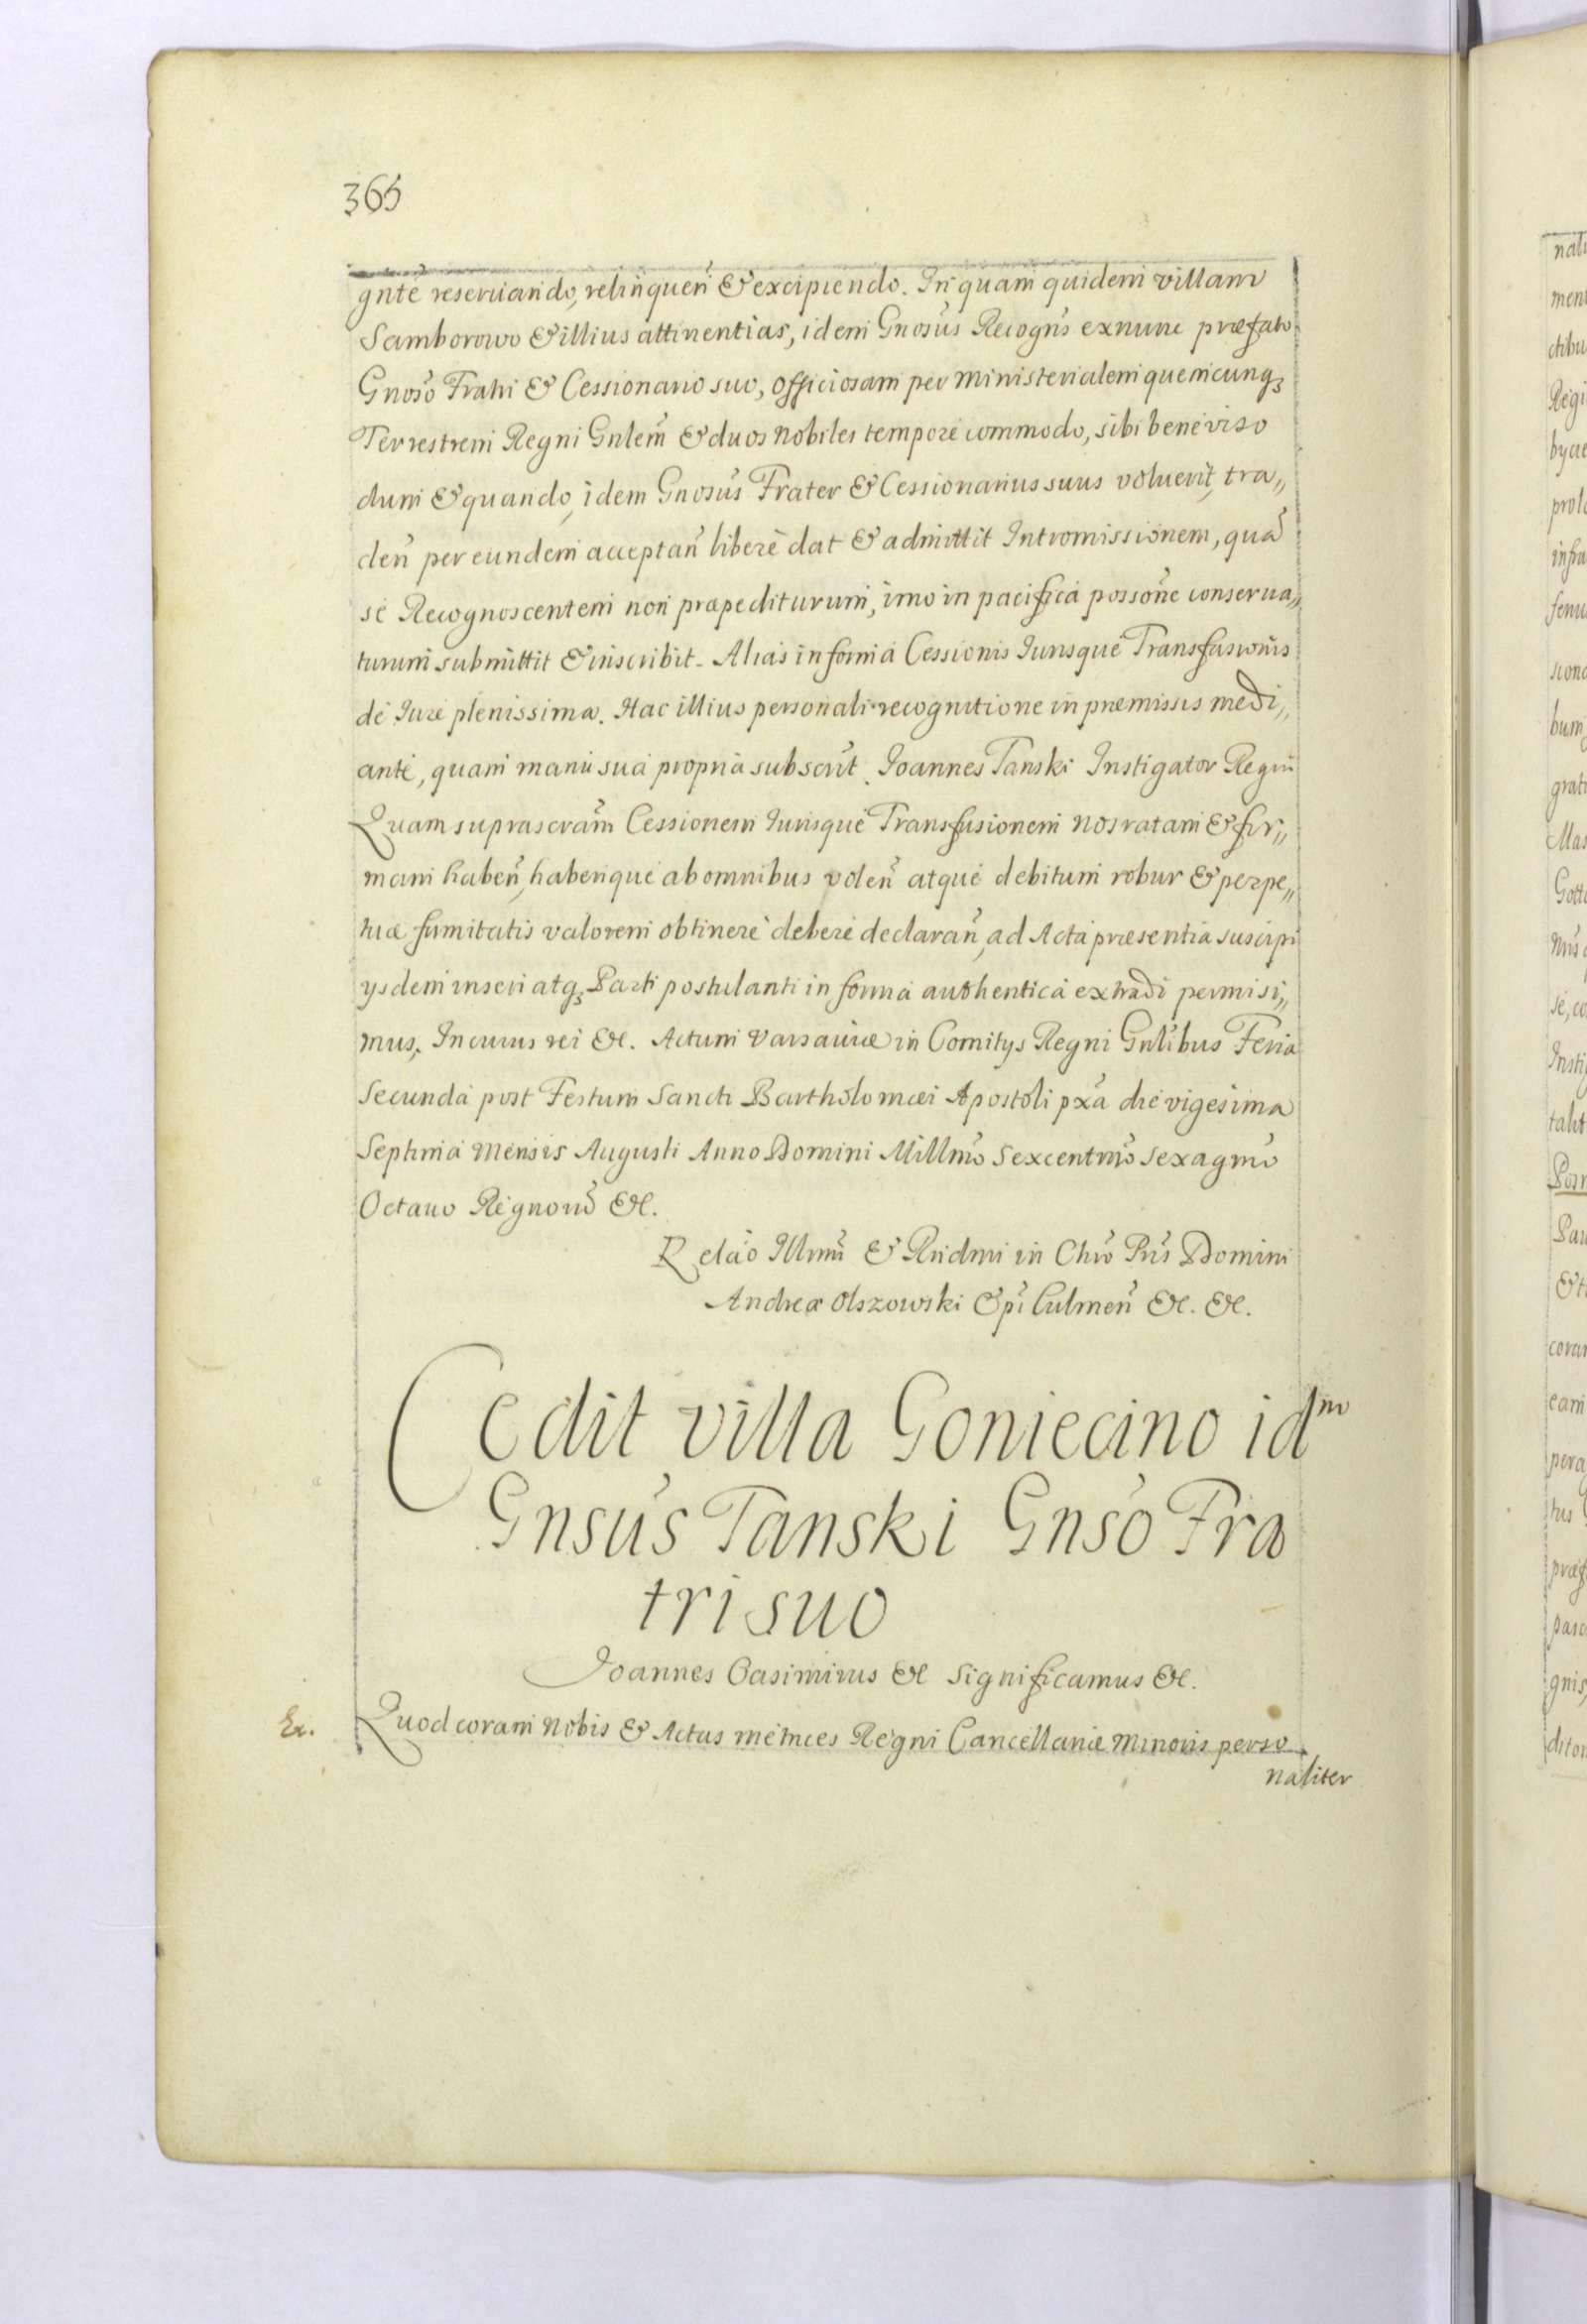 365
gnte reseruando, relinquen̄ & excipiendo. In quam quidem villam
Samborowo & illius attinentias, idem Gnosus Recogn̄s exnunc præfato
Gnoso Fratri & Cessionario suo, officiosam per Ministerialem quemcunq₃
Terrestrem Regni Gnlem & duos Nobiles tempore commodo, sibi beneviso
dum & quando, idem Gnosus Frater & Cessionarius suus voluerit, tra„
den̄ per eundem acceptan̄ liberè dat & admittit Intromissionem, quā
se Recognoscentem non præpediturum, imo in pacifica possōne conserua„
turum submittit & inscribit. Alias in forma Cessionis Iurisque Transfusionis
de Iure plenissima. Hac illius personali recognitione in præmissis medi„
ante, quam manu sua propria subscrit. Joannes Tanski Instigator Regni
Quam suprascrām Cessionem Iurisque Transfusionem nos ratam & fir„
mam haben̄, haberique ab omnibus volen̄ atque debitum robur & perpe„
tuæ firmitatis valorem obtinere debere declaran̄, ad Acta præsentia suscipi
ysdem inseri atq₃ Parti postulanti in forma authentica extradi permisi„
mus, In cuius rei &c. Actum Varsaviæ in Comitys Regni Gnlibus Feria
Secunda post Festum Sancti Bartholomæi Apostoli pxā die vigesima
Septima Mensis Augusti Anno Domini Millmō Sexcentmō Sexagmō
Octauo Regnorū &c.
Relāo Illmi & Rndmi in Chrō Pris Domini
Andreæ Olszowski Epi Culmen̄ &c. &c.
Cedit villa Goniecino idᵐ
Gnsus Tanski Gnso Fra
tri suo
Joannes Casimirus &c Significamus &c.
Ex.
Quod coram Nobis & Actus metrices Regni Cancellariæ Minoris perso
naliter